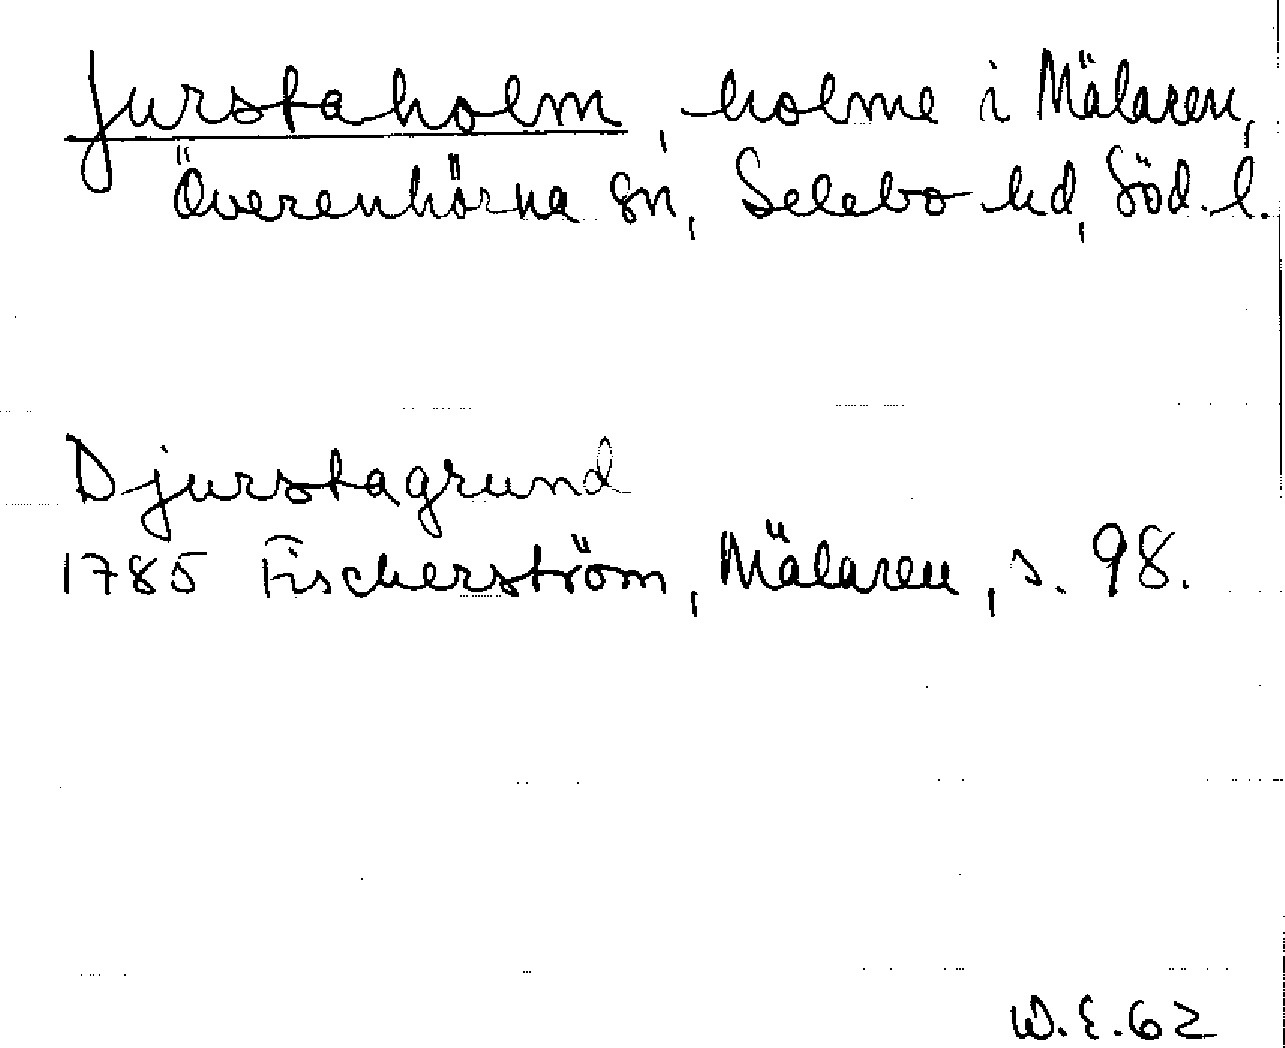 Jurstaholm, holme i Mälaren,
Överenhörna sn, Selebo hd, Söd. l.
Djurstagrund
1785 Fischerström, Mälaren, s. 98.
W.E.62